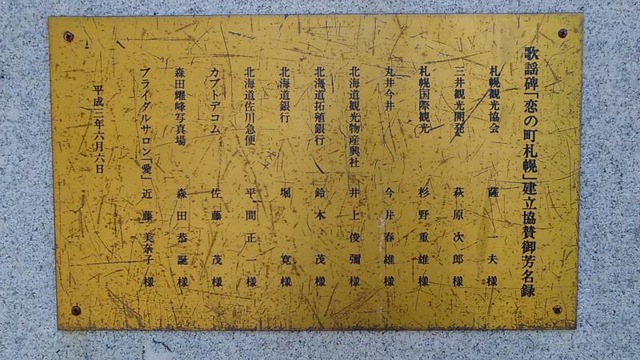 歌謡碑「恋の町札幌」建立協賛御芳名録
札幌観光協会 薩 一夫様
三井観光開発 萩原次郎様
札幌国際観光 杉野重雄様
丸井今井 今井春雄様
北海道観光物産興社 井上俊彌様
北海道拓殖銀行 鈴木 茂様
北海道銀行 堀 寛様
北海道佐川急便 平間正一様
カブトデコム 佐藤 茂様
森田燿峰写真場 森田恭誕様
ブライダルサロン「愛」 近藤美奈子様
平成二年六月六日